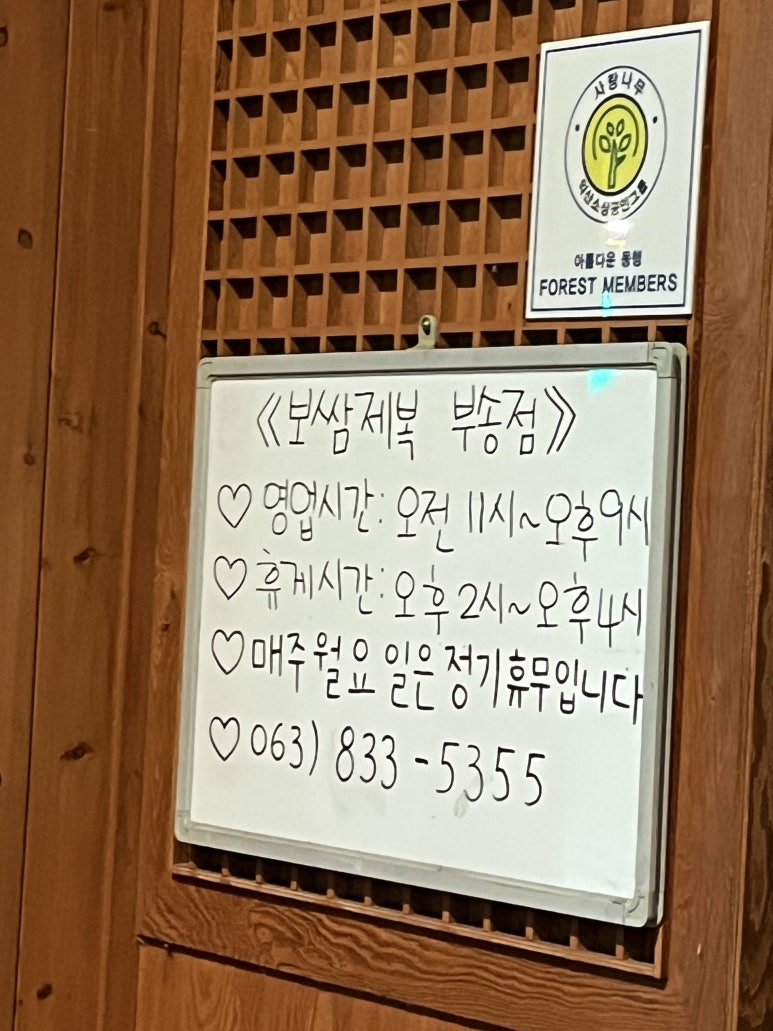 사랑나무
익산소상공인그룹
아름다운 동행
FOREST MEMBERS
《보쌈제복 부송점》
♡ 영업시간: 오전 11시~오후 9시
♡ 휴게시간: 오후 2시~오후 4시
♡ 매주 월요일은 정기휴무입니다
♡ 063) 833-5355